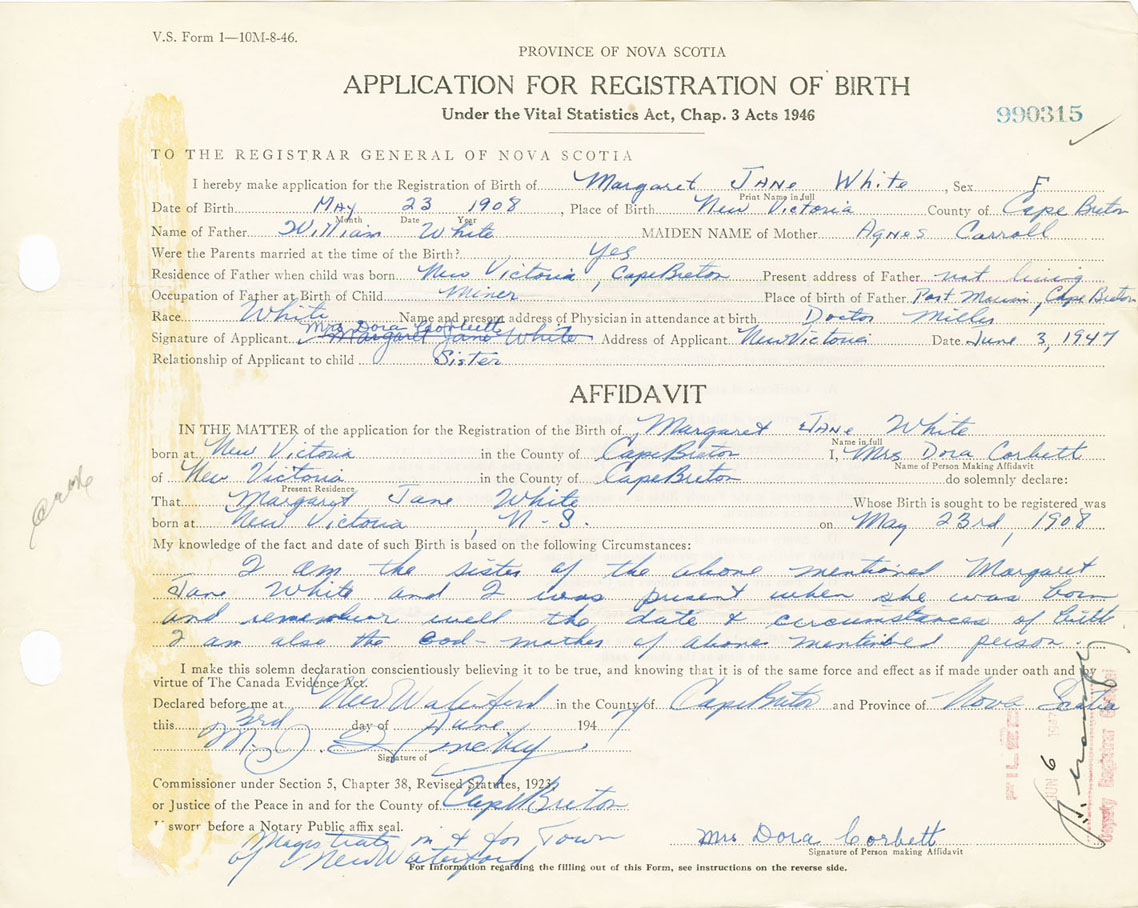 V.S. Form 1—10M-8-46.
PROVINCE OF NOVA SCOTIA
APPLICATION FOR REGISTRATION OF BIRTH
Under the Vital Statistics Act, Chap. 3 Acts 1946
990315
TO THE REGISTRAR GENERAL OF NOVA SCOTIA
I hereby make application for the Registration of Birth of Margaret Jane White, Sex F
Print Name in full
Date of Birth May 23 1908, Place of Birth New Victoria County of Cape Breton
Month Date Year
Name of Father William White MAIDEN NAME of Mother Agnes Carroll
Were the Parents married at the time of the Birth? Yes
Residence of Father when child was born New Victoria, Cape Breton Present address of Father not living
Occupation of Father at Birth of Child Miner Place of birth of Father Port Morien, Cape Breton
Race White Name and present address of Physician in attendance at birth Doctor Miller
Mrs Dora Corbett
Signature of Applicant Margaret Jane White Address of Applicant New Victoria Date June 3, 1947
Relationship of Applicant to child Sister
AFFIDAVIT
IN THE MATTER of the application for the Registration of the Birth of Margaret Jane White
Name in full
born at New Victoria in the County of Cape Breton I, Mrs Dora Corbett
Name of Person Making Affidavit
of New Victoria in the County of Cape Breton do solemnly declare:
Present Residence
That Margaret Jane White Whose Birth is sought to be registered was
born at New Victoria, N.S. on May 23rd, 1908
My knowledge of the fact and date of such Birth is based on the following Circumstances:
I am the sister of the above mentioned Margaret
Jane White and I was present when she was born
and remember well the date & circumstances of birth.
I am also the God-mother of above mentioned person.
I make this solemn declaration conscientiously believing it to be true, and knowing that it is of the same force and effect as if made under oath and by
virtue of The Canada Evidence Act.
Declared before me at New Waterford in the County of Cape Breton and Province of Nova Scotia
this 3rd day of June 1947
M. J.
Signature of
Commissioner under Section 5, Chapter 38, Revised Statutes, 1923,
or Justice of the Peace in and for the County of Cape Breton
If sworn before a Notary Public affix seal.
Magistrate in & for Town
of New Waterford
Mrs Dora Corbett
Signature of Person making Affidavit
For Information regarding the filling out of this Form, see instructions on the reverse side.
FILED
JUN 6 1947
Deputy Registrar General